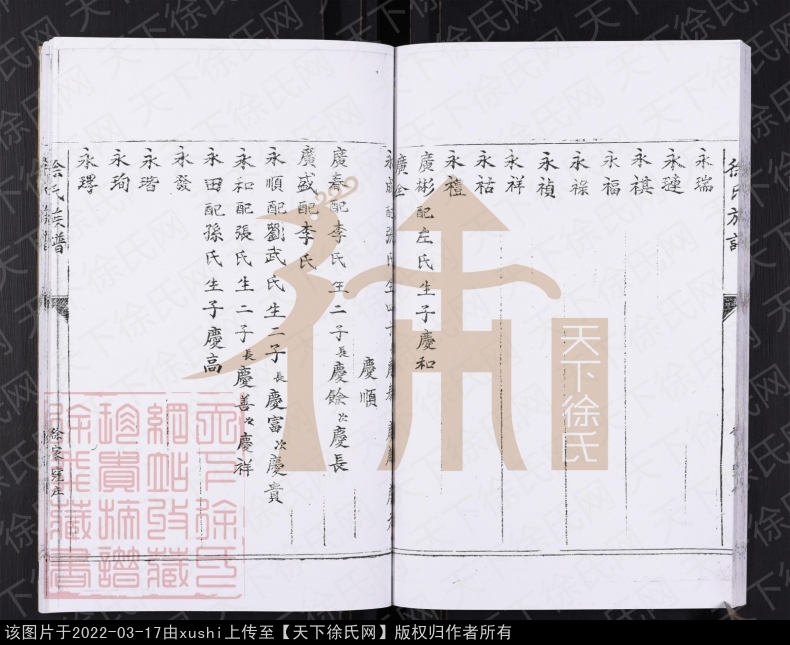 徐氏族譜
永瑞
永璉
永祺
永福
永祿
永禎
永祥
永祜
永禮
廣彬配左氏生子慶和
廣全
慶順
廣泰配李氏生二子長慶餘次慶長
廣盛配李氏
永順配劉武氏生二子長慶富次慶貴
永和配張氏生二子長慶善次慶祥
永田配孫氏生子慶高
永發
永瑎
永珣
徐氏族譜
天下徐氏
天下徐氏
網站收藏
珍貴族譜
徐義藏書
天下徐氏网
该图片于2022-03-17由xushi上传至【天下徐氏网】版权归作者所有